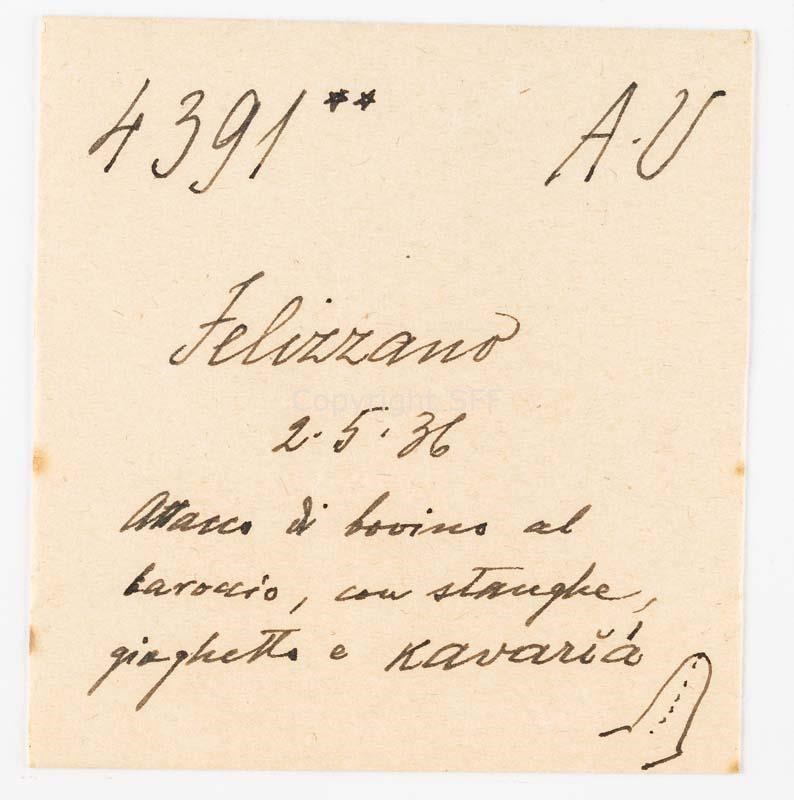 4391** A.U
Felizzano
Copyright SFF
2.5.36
Attacco di bovino al
baroccio, con stanghe,
gioghetto e kavarĭá